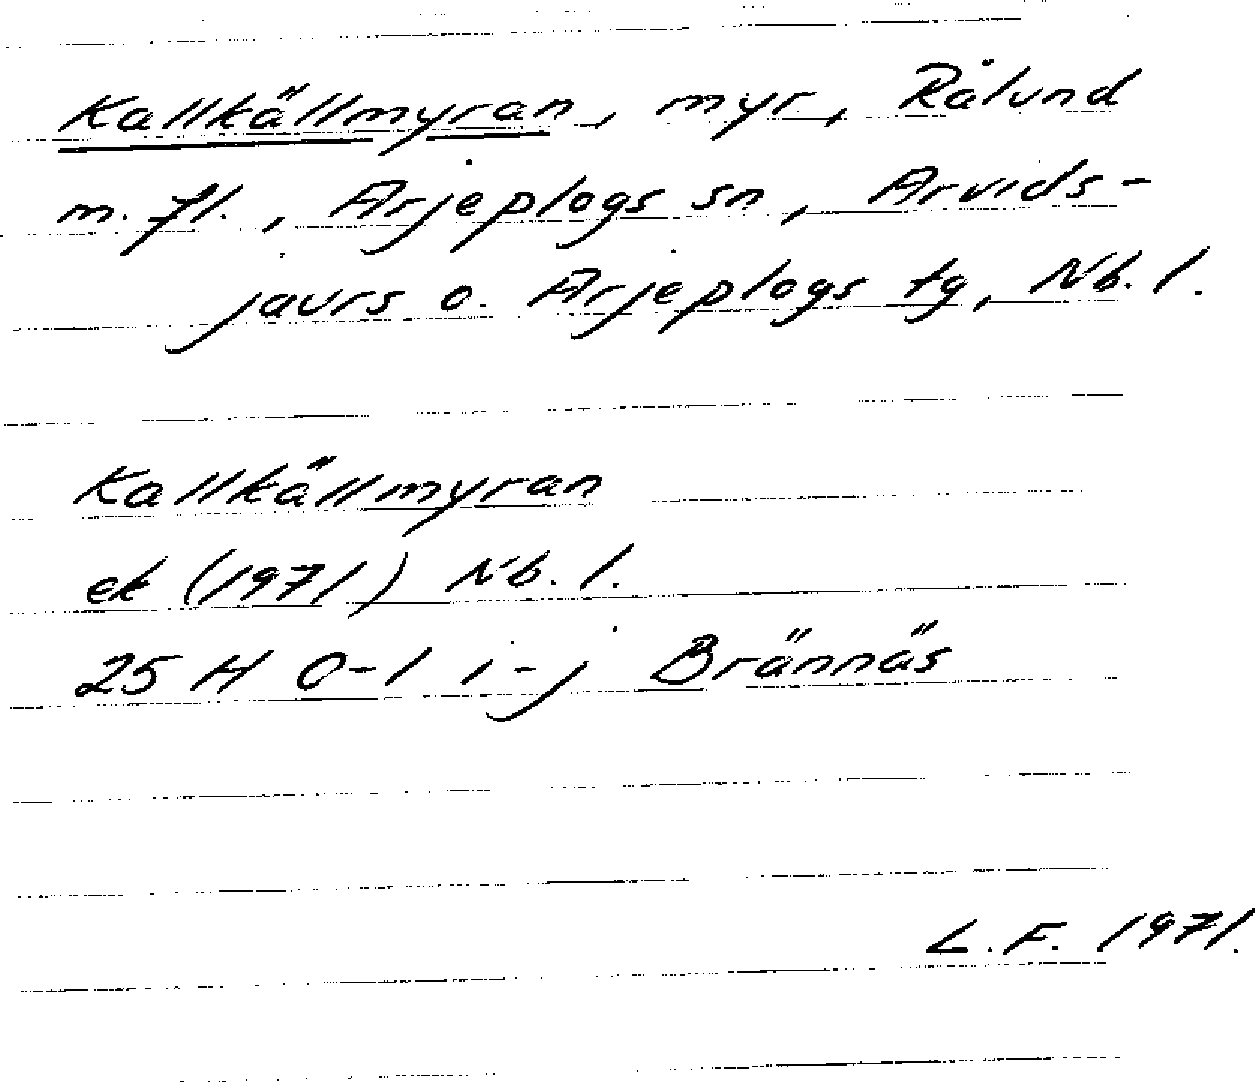 Kallkällmyran, myr, Rålund
m.fl., Arjeplogs sn, Arvids-
jaurs o. Arjeplogs tg, Nb. l.
Kallkällmyran
ek (1971) Nb. l.
25 H 0-1 i-j Brännäs
L.F. 1971.